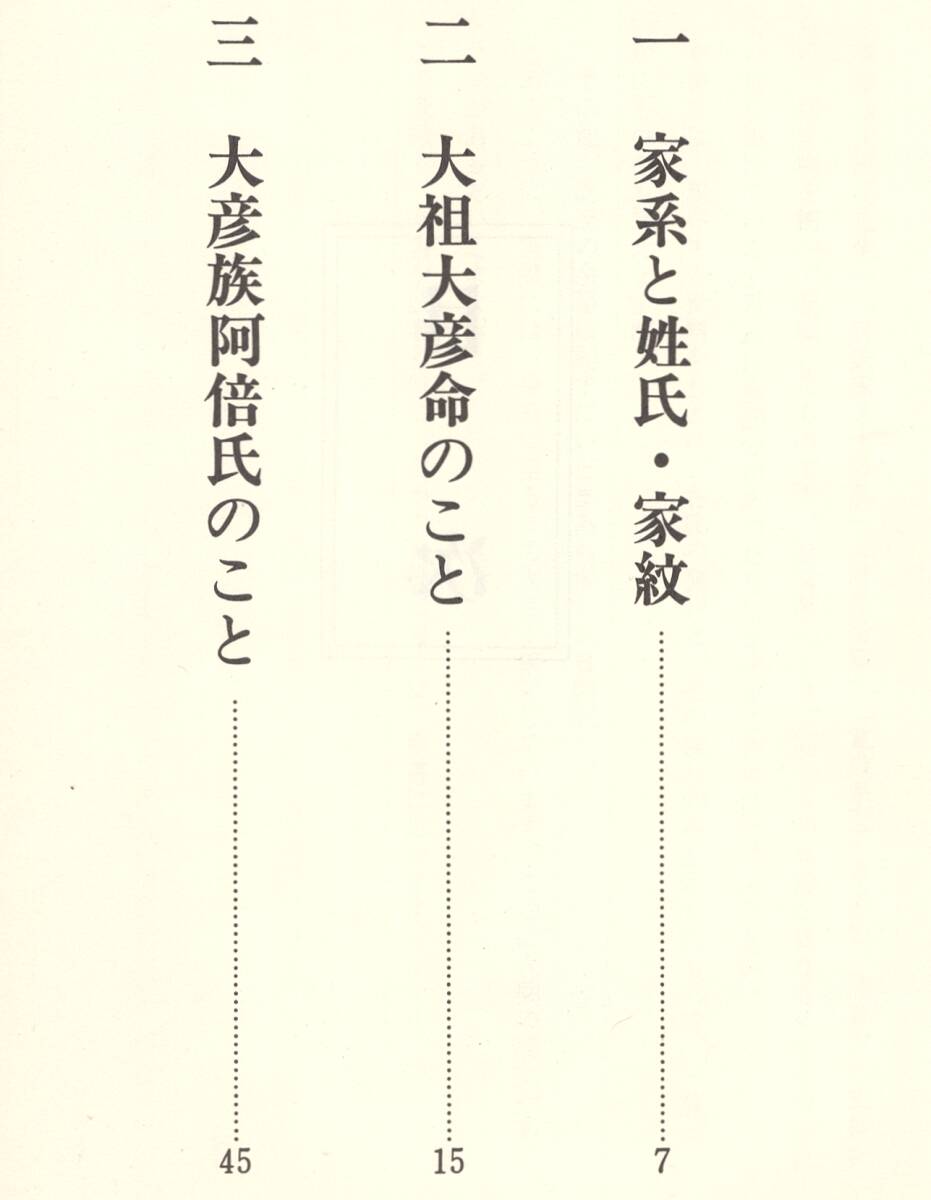 一 家系と姓氏・家紋……………………7
二 大祖大彦命のこと……………………15
三 大彦族阿倍氏のこと……………………45